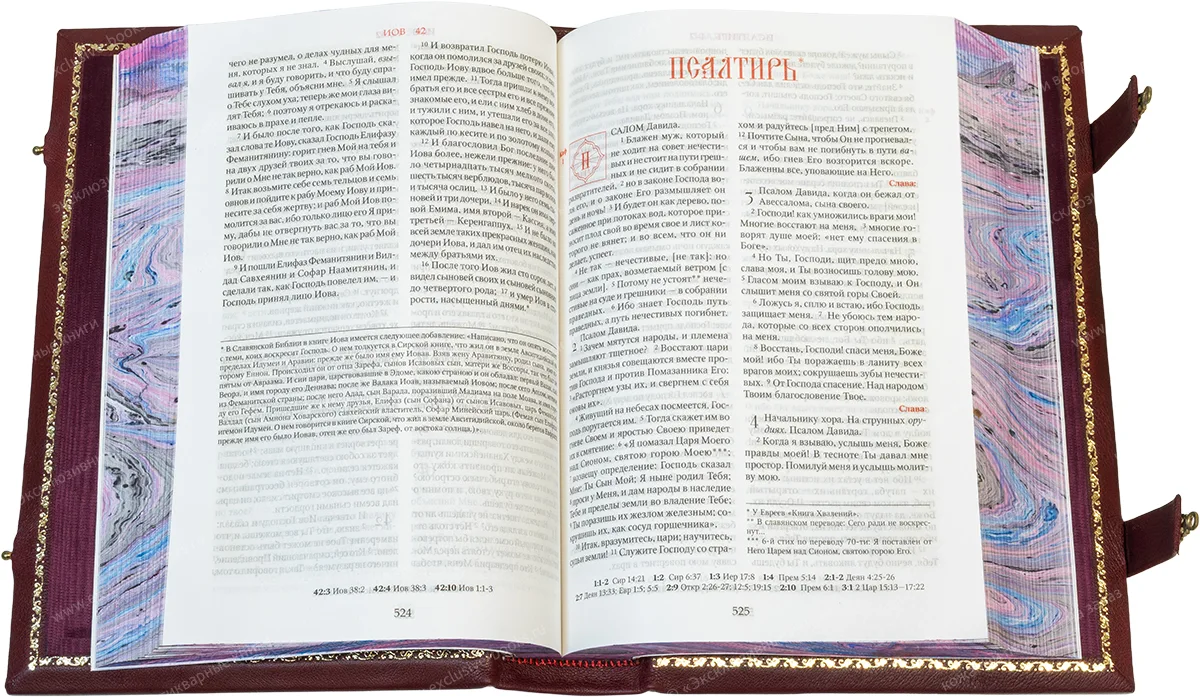 ИОВ 42
чего не разумел, о делах чудных для ме-
ня, которых я не знал. 4 Выслушай, взы-
вал я, и я буду говорить, и что буду спра-
шивать у Тебя, объясни мне. 5 Я слышал
о Тебе слухом уха; теперь же мои глаза ви-
дят Тебя; 6 поэтому я отрекаюсь и раска-
иваюсь в прахе и пепле.
7 И было после того, как Господь ска-
зал слова те Иову, сказал Господь Елифазу
Феманитянину: горит гнев Мой на тебя и
на двух друзей твоих за то, что вы гово-
рили о Мне не так верно, как раб Мой Иов.
8 Итак возьмите себе семь тельцов и семь
овнов и пойдите к рабу Моему Иову и при-
несите за себя жертву; и раб Мой Иов по-
молится за вас, ибо только лицо его Я при-
му, дабы не отвергнуть вас за то, что вы
говорили о Мне не так верно, как раб Мой
Иов.
9 И пошли Елифаз Феманитянин и Вил-
дад Савхеянин и Софар Наамитянин, и
сделали так, как Господь повелел им, — и
Господь принял лицо Иова.
10 И возвратил Господь потерю Иова,
когда он помолился за друзей своих; и дал
Господь Иову вдвое больше того, что он
имел прежде. 11 Тогда пришли к нему все
братья его и все сестры его и все прежние
знакомые его, и ели с ним хлеб в доме его,
и тужили с ним, и утешали его за все зло,
которое Господь навел на него, и дали ему
каждый по кесите и по золотому кольцу.
12 И благословил Бог последние дни
Иова более, нежели прежние: у него было
четырнадцать тысяч мелкого скота,
шесть тысяч верблюдов, тысяча пар волов
и тысяча ослиц. 13 И было у него семь сыновей
и три дочери. 14 И нарек он имя
первой Емима, имя второй — Кассия, а имя
третьей — Керенгаппух. 15 И не было на
всей земле таких прекрасных женщин, как
дочери Иова, и дал им отец их наследство
между братьями их.
16 После того Иов жил сто сорок лет, и
видел сыновей своих и сыновей сыновних
до четвертого рода; 17 и умер Иов в ста-
рости, насыщенный днями.*
* В Славянской Библии к книге Иова имеется следующее добавление: «Написано, что он опять восстанет
с теми, коих воскресит Господь. О нем толкуется в Сирской книге, что жил он в земле Авситидийской на
пределах Идумеи и Аравии; прежде же было имя ему Иовав. Взяв жену Аравитянку, родил сына,
которому Еннон. Происходил он от отца Зарефа, сынов Исавовых сын, матери же Воссоры, так что был
пятым от Авраама. И сии цари, царствовавшие в Эдоме, какою страною и он обладал: первый Валак, сын
Веора, и имя городу его Деннава; после же Валака Иовав, называемый Иовом; после сего Ассом, игемон
из Феманитской страны; после него Адад, сын Варада, поразивший Мадиама на поле Моава, и имя горо-
ду его Гефем. Пришедшие же к нему друзья, Елифаз (сын Софана) от сынов Исавовых, царь Феманский,
Валдад (сын Амнона Ховарского) савхейский властитель, Софар Минейский царь. (Феман сын Елифаза,
игемон Идумеи. О нем говорится в книге Сирской, что жил в земле Авситидийской, около берегов Евфрата;
прежде имя его было Иовав, отец же его был Зареф, от востока солнца.)»
42:3 Иов 38:2 42:4 Иов 38:3 42:10 Иов 1:1-3
524
ПСАЛТИРЬ*
ПСАЛОМ Давида.
1 Блажен муж, который
не ходит на совет нечести-
вых и не стоит на пути греш-
ных и не сидит в собрании
развратителей, 2 но в законе Господа во-
ля его, и о законе Его размышляет он
день и ночь! 3 И будет он как дерево, по-
саженное при потоках вод, которое при-
носит плод свой во время свое и лист ко-
торого не вянет; и во всем, что он ни
делает, успеет.
4 Не так — нечестивые, [не так]: но
они — как прах, возметаемый ветром [с
лица земли]. 5 Потому не устоят** нече-
стивые на суде и грешники — в собрании
праведных. 6 Ибо знает Господь путь
праведных, а путь нечестивых погибнет.
Псалом Давида.
2 1 Зачем мятутся народы, и племена
замышляют тщетное? 2 Восстают цари
земли, и князья совещаются вместе про-
тив Господа и против Помазанника Его:
3 «Расторгнем узы их, и свергнем с себя
оковы их».
4 Живущий на небесах посмеется, Гос-
подь поругается им. 5 Тогда скажет им во
гневе Своем и яростью Своею приведет
их в смятение: 6 «Я помазал Царя Моего
над Сионом, святою горою Моею***;
7 возвещу определение: Господь сказал
Мне: Ты Сын Мой; Я ныне родил Тебя;
8 проси у Меня, и дам народы в наследие
Тебе и пределы земли во владение Тебе;
9 Ты поразишь их жезлом железным; со-
крушишь их, как сосуд горшечника».
10 Итак, вразумитесь, цари; научитесь,
судьи земли! 11 Служите Господу со стра-
хом и радуйтесь [пред Ним] с трепетом.
12 Почтите Сына, чтобы Он не прогневал-
ся и чтобы вам не погибнуть в пути ва-
шем, ибо гнев Его возгорится вскоре.
Блаженны все, уповающие на Него.
Слава:
3 Псалом Давида, когда он бежал от
Авессалома, сына своего.
2 Господи! как умножились враги мои!
Многие восстают на меня, 3 многие го-
ворят душе моей: «нет ему спасения в
Боге».
4 Но Ты, Господи, щит предо мною,
слава моя, и Ты возносишь голову мою.
5 Гласом моим взываю к Господу, и Он
слышит меня со святой горы Своей.
6 Ложусь я, сплю и встаю, ибо Господь
защищает меня. 7 Не убоюсь тем наро-
да, которые со всех сторон ополчились
на меня.
8 Восстань, Господи! спаси меня, Боже
мой! ибо Ты поражаешь в ланиту всех
врагов моих; сокрушаешь зубы нечести-
вых. 9 От Господа спасение. Над народом
Твоим благословение Твое.
Слава:
4 Начальнику хора. На струнных ору-
диях. Псалом Давида.
2 Когда я взываю, услышь меня, Боже
правды моей! В тесноте Ты давал мне
простор. Помилуй меня и услышь молит-
ву мою.
* У Евреев «Книга Хвалений».
** В славянском переводе: Сего ради не воскрес-
нут...
*** 6-й стих по переводу 70-ти: Я поставлен от
Него Царем над Сионом, святою горою Его.
1:1-2 Сир 14:21 1:2 Сир 6:37 1:3 Иер 17:8 1:4 Прем 5:14 2:1-2 Деян 4:25-26
2:7 Деян 13:33; Евр 1:5; 5:5 2:9 Откр 2:26-27; 12:5; 19:15 2:10 Прем 6:1 3:1 2 Цар 15:13—17:22
525